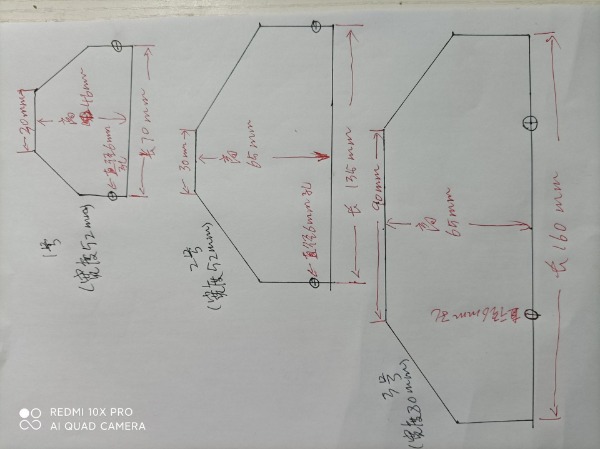 20mm
高 46mm
直径6mm孔
长70mm
1号
(宽度52mm)
30mm
高
65mm
直径6mm孔
长 135mm
2号
(宽度52mm)
90mm
高
65mm
直径6mm孔
长 160mm
3号
(宽度30mm)
REDMI 10X PRO
AI QUAD CAMERA